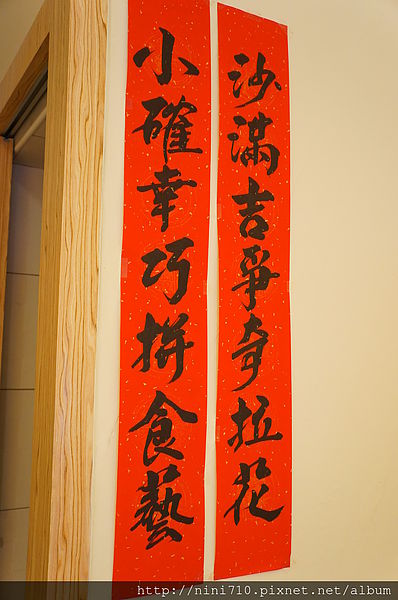 沙滿吉爭奇拉花
小確幸巧拼食藝
http://nini710.pixnet.net/album